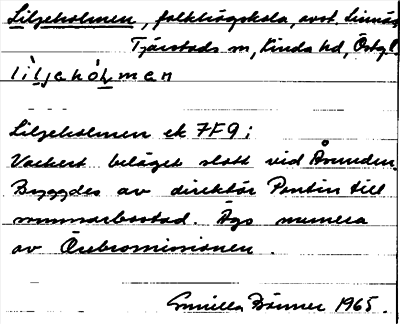 Liljeholmen, folkhögskola, avst. Linnäs,
Tjärstads sn, Kinda hd, Östgl.
lìljahólman
Liljeholmen ek 7F9;
Vackert beläget slott vid Åsunden.
Byggdes av direktör Pontin till
sommarbostad. Ägs numera
av Örebromissionen.
Gunilla Bönner 1965.